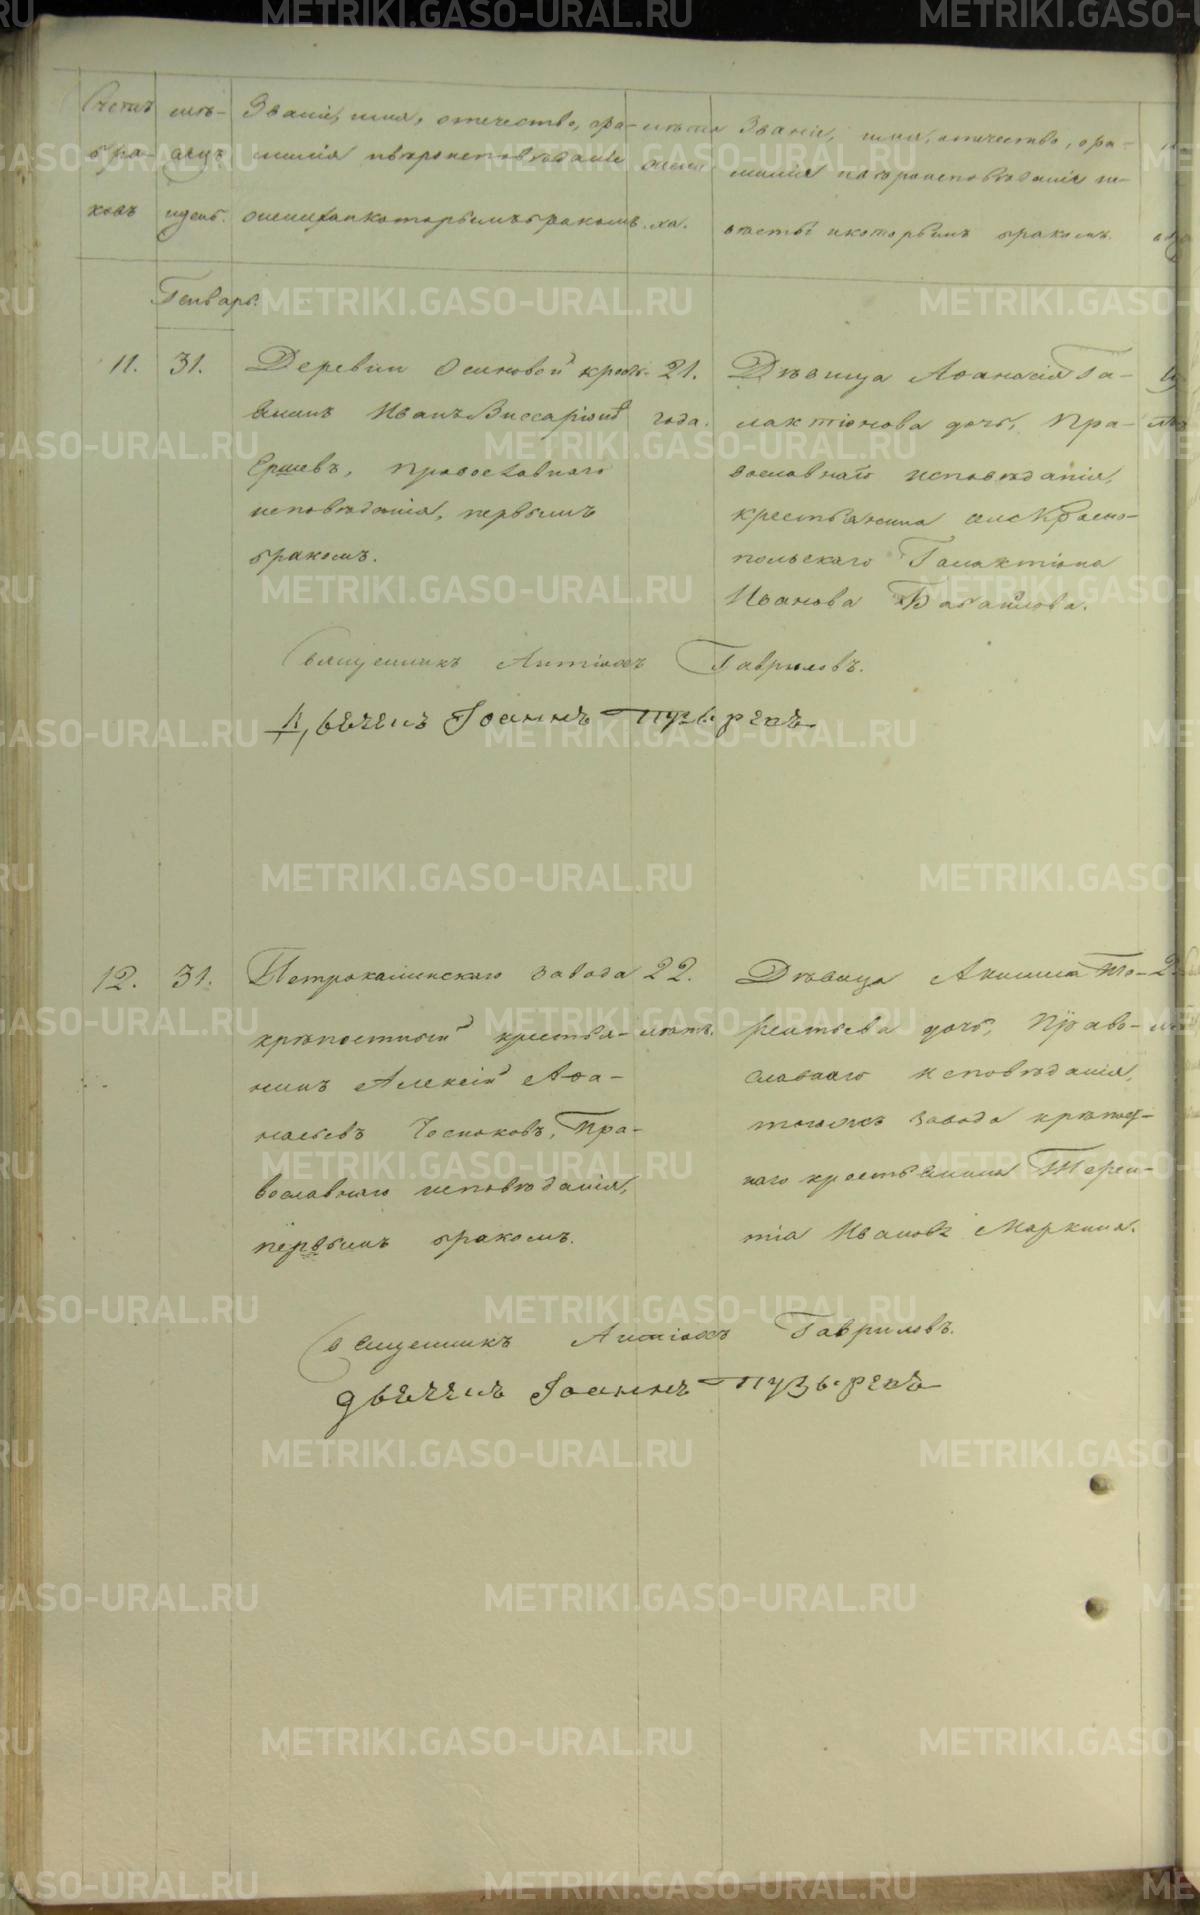 Счетъ бра- ковъ
мѣ- сяцъ и день.
Званіе, имя, отечество, фа- милія и вѣроисповѣданіе жениха и которымъ бракомъ.
лѣта жени- ха.
Званіе, имя, отечество, фа- милія и вѣроисповѣданіе не- вѣсты и которымъ бракомъ.
Генварь.
11.
31.
Деревни Осиновой кресть-
янинъ Иванъ Виссаріоновъ
Ершевъ, православнаго
исповѣданія, первымъ
бракомъ.
21.
года.
Дѣвица Афанасія Га-
лактіонова дочь, Пра-
вославнаго исповѣданія,
крестьянина села Красно-
польскаго Галактіона
Иванова Бабайлова.
Священникъ Антіохъ Гавриловъ.
Двечему Іоаннъ Пузыревъ
12.
31.
Петрокаминскаго завода
крѣпостный крестья-
нинъ Алексій Афа-
насьевъ Чесноковъ, Пра-
вославнаго исповѣданія,
первымъ бракомъ.
22.
лѣтъ.
Дѣвица Акилина Те-
рентьева дочь, Право-
славнаго исповѣданія,
тогожъ завода крѣпост-
наго крестьянина Терен-
тія Иванова Маркина.
Священникъ Антіохъ Гавриловъ.
Двечему Іоаннъ Пузыревъ
METRIKI.GASO-URAL.RU